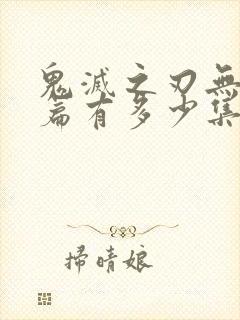 鬼滅之刃無
篇有多少集
掃晴娘